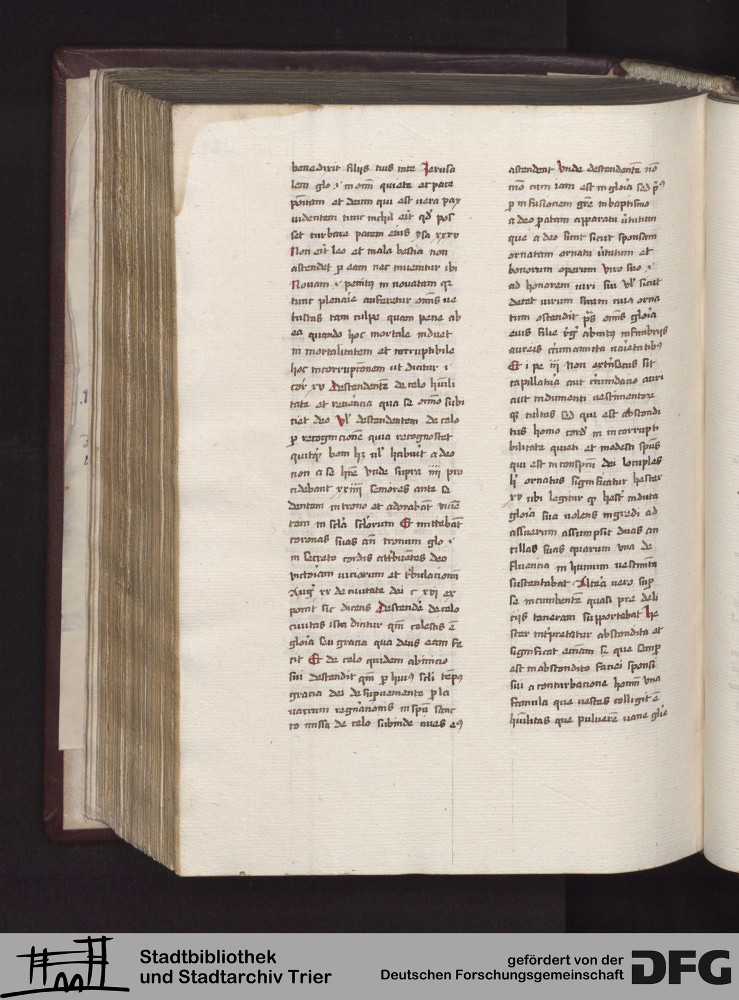 benedixit filijs tuis in te Jerusa
lem glo i in omni quiete et pace
et deum qui est vera pax
videntem tunc nichil erit qd pos
set turbare pacem eius ysa xxxv
Non erit leo et mala bestia non
ascendet p eam nec invenietur ibi
Novam i penitus in novatam qz
tunc plenarie auferetur omnis ve
tustas tam culpe quam pene ab
ea quando hoc mortale induet
in mortalitatem et corruptibile
hoc incorrupcionem ut dicitur i
cor xv Descendentem de celo humili
tate et reverencia qua se omnino subi
ciet deo Vl descendentem de celo
p recognicionem quia recognoscet
quitqz boni hz vl habuit a deo
non a se Unde supra iiij pro
cidebant xxiiij seniores ante se
dentem in trono et adorabant viven
tem in scla sclorum Et mittebant
coronas suas an tronum glo i
in secreto cordis attribuentes deo
victoriam viciorum et tribulacionum
Augus xx de civitate dei c xvi ex
ponit sic dicens Descendere de celo
civitas ista dicitur qm celestis e
gloria seu gracia qua deus eam fe
cit Et de celo quidem ab inicio
sui descendit qm p huius scli temp9
gracia dei desuper veniente p la
vacrum regnacionis in spu sanc
to missa de celo subinde cives e9
ascendent Unde descendentem no
modo cum iam est in gloria sed p9
p in fusionem gre in baptismo
a deo paratam apparatu virtutum
que a deo sunt sicut sponsam
ornatam ornatu virtutum et
bonorum operum viro suo i
ad honorem viri sui vl sicut
decet virum suum cuius orna
tum ostendit ps omnis gloria
eius filie reg ab intus in fimbrijs
aureis circumamicta varietatibus
Et i pe iij Non extrinsecus sit
capillatura aut circumdacio auri
aut indumenti vestimentorum
cultus sed qui est abscondi
tus homo cordis in incorrupti
bilitate quieti et modesti spus
qui est in conspectu dei locuples
hic ornatus significatur hester
xv ubi legitur qz hester induta
gloria sua volens ingredi ad
assuerum assumpsit duas an
cillas suas quarum una de
fluencia in humum vestimenta
sustentabat Altera vero sup
se incumbentem quasi pre deli
cijs teneram supportabat He
ster interpretatur abscondita et
significat animam que semper
est in abscondito faciei sponsi
sui a conturbacione hominum Una
famula que vestes colligit e
humilitas que pulverem vane glorie
Stadtbibliothek
und Stadtarchiv Trier
gefördert von der
Deutschen Forschungsgemeinschaft
DFG